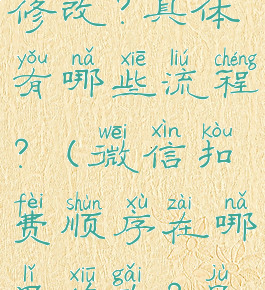 修改？具体
yǒu nǎ xiē liú chéng
有哪些流程
wēi xìn kòu
？（微信扣
fèi shùn xù zài nǎ
费顺序在哪
lǐ xiū gǎi jù